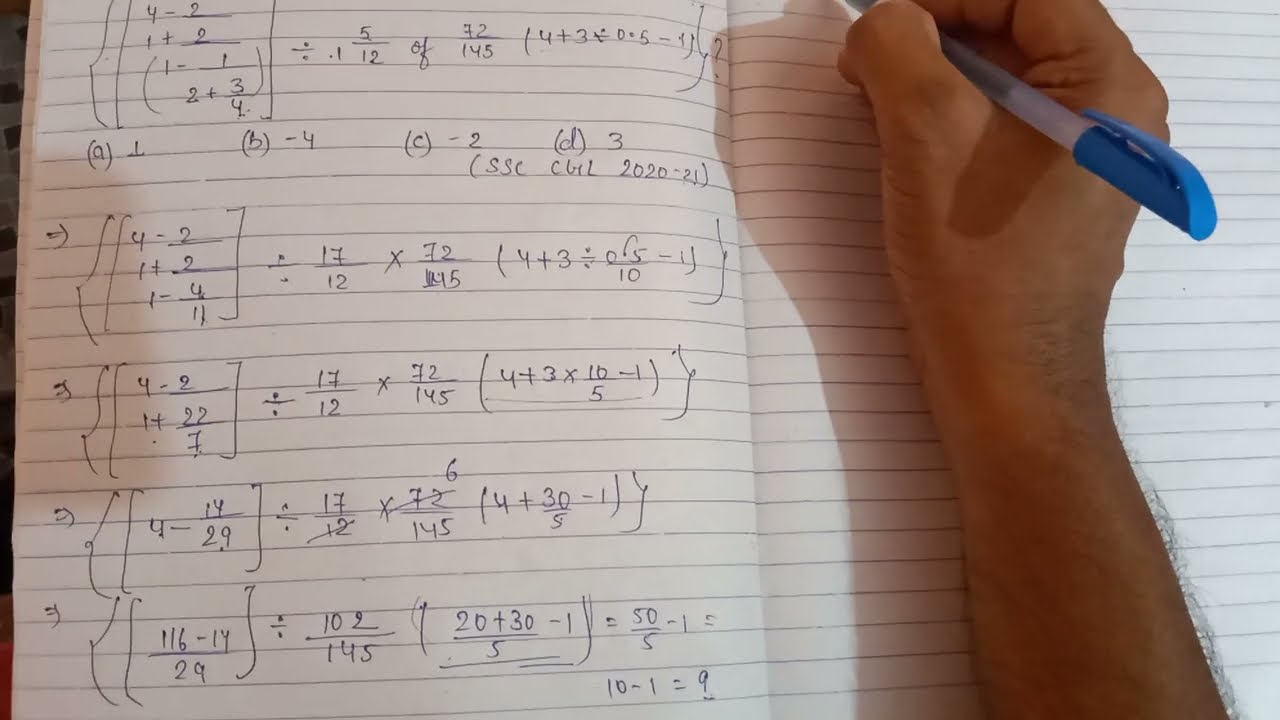 {[4 - 2 / 1 + 2 / (1 - 1 / 2 + 3/4)] ÷ .1 5/12 of 72/145 (4+3÷0.5-1)}?
(a) 1 (b) -4 (c) -2 (d) 3
(SSC CGL 2020-21)
⇒ {[4 - 2 / 1 + 2 / 1 - 4/11] ÷ 17/12 × 72/145 (4+3÷05/10 -1)}
⇒ {[4 - 2 / 1 + 22/7] ÷ 17/12 × 72/145 (4+3×10/5 -1)}
⇒ {[4 - 14/29] ÷ 17/12 × 72/145 6 (4+30/5 -1)}
⇒ {[116-14/29] ÷ 102/145 (20+30/5 -1) = 50/5 -1 =
10-1 = 9